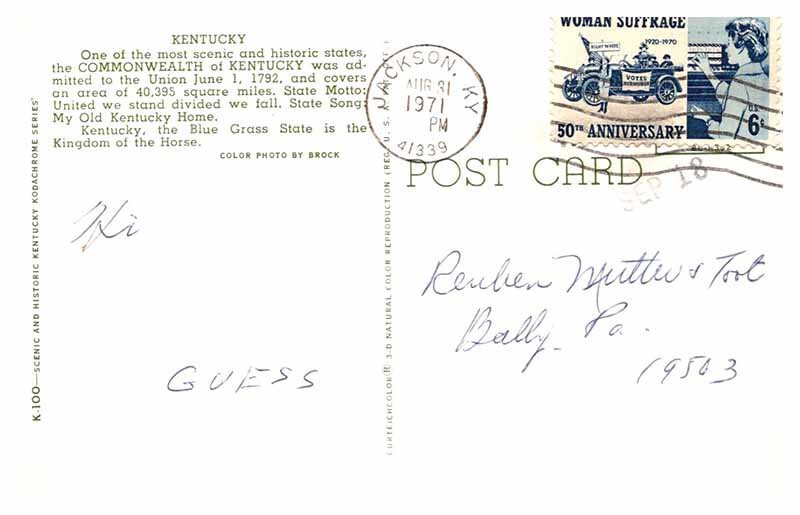 KENTUCKY
One of the most scenic and historic states,
the COMMONWEALTH of KENTUCKY was ad-
mitted to the Union June 1, 1792, and covers
an area of 40,395 square miles. State Motto:
United we stand divided we fall. State Song:
My Old Kentucky Home.
Kentucky, the Blue Grass State is the
Kingdom of the Horse.
COLOR PHOTO BY BROCK
K-100—SCENIC AND HISTORIC KENTUCKY KODACHROME SERIES
Hi
GUESS
CURTEICHCOLOR® 3-D NATURAL COLOR REPRODUCTION (REG. U.S.A.
JACKSON, KY
AUG 31
1971
PM
41339
WOMAN SUFFRAGE
1920-1970
VOTES
50TH ANNIVERSARY
U.S.
6c
POST CARD
SEP 18
Reuben
Toot
Bally, Pa.
19503